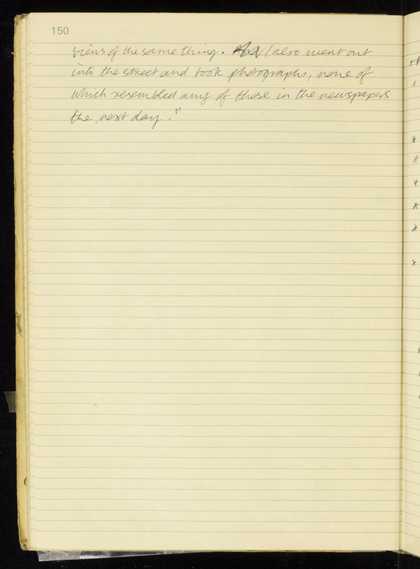 150
views of the same thing. I also went out
into the street and took photographs, none of
which resembled any of those in the newspapers
the next day."